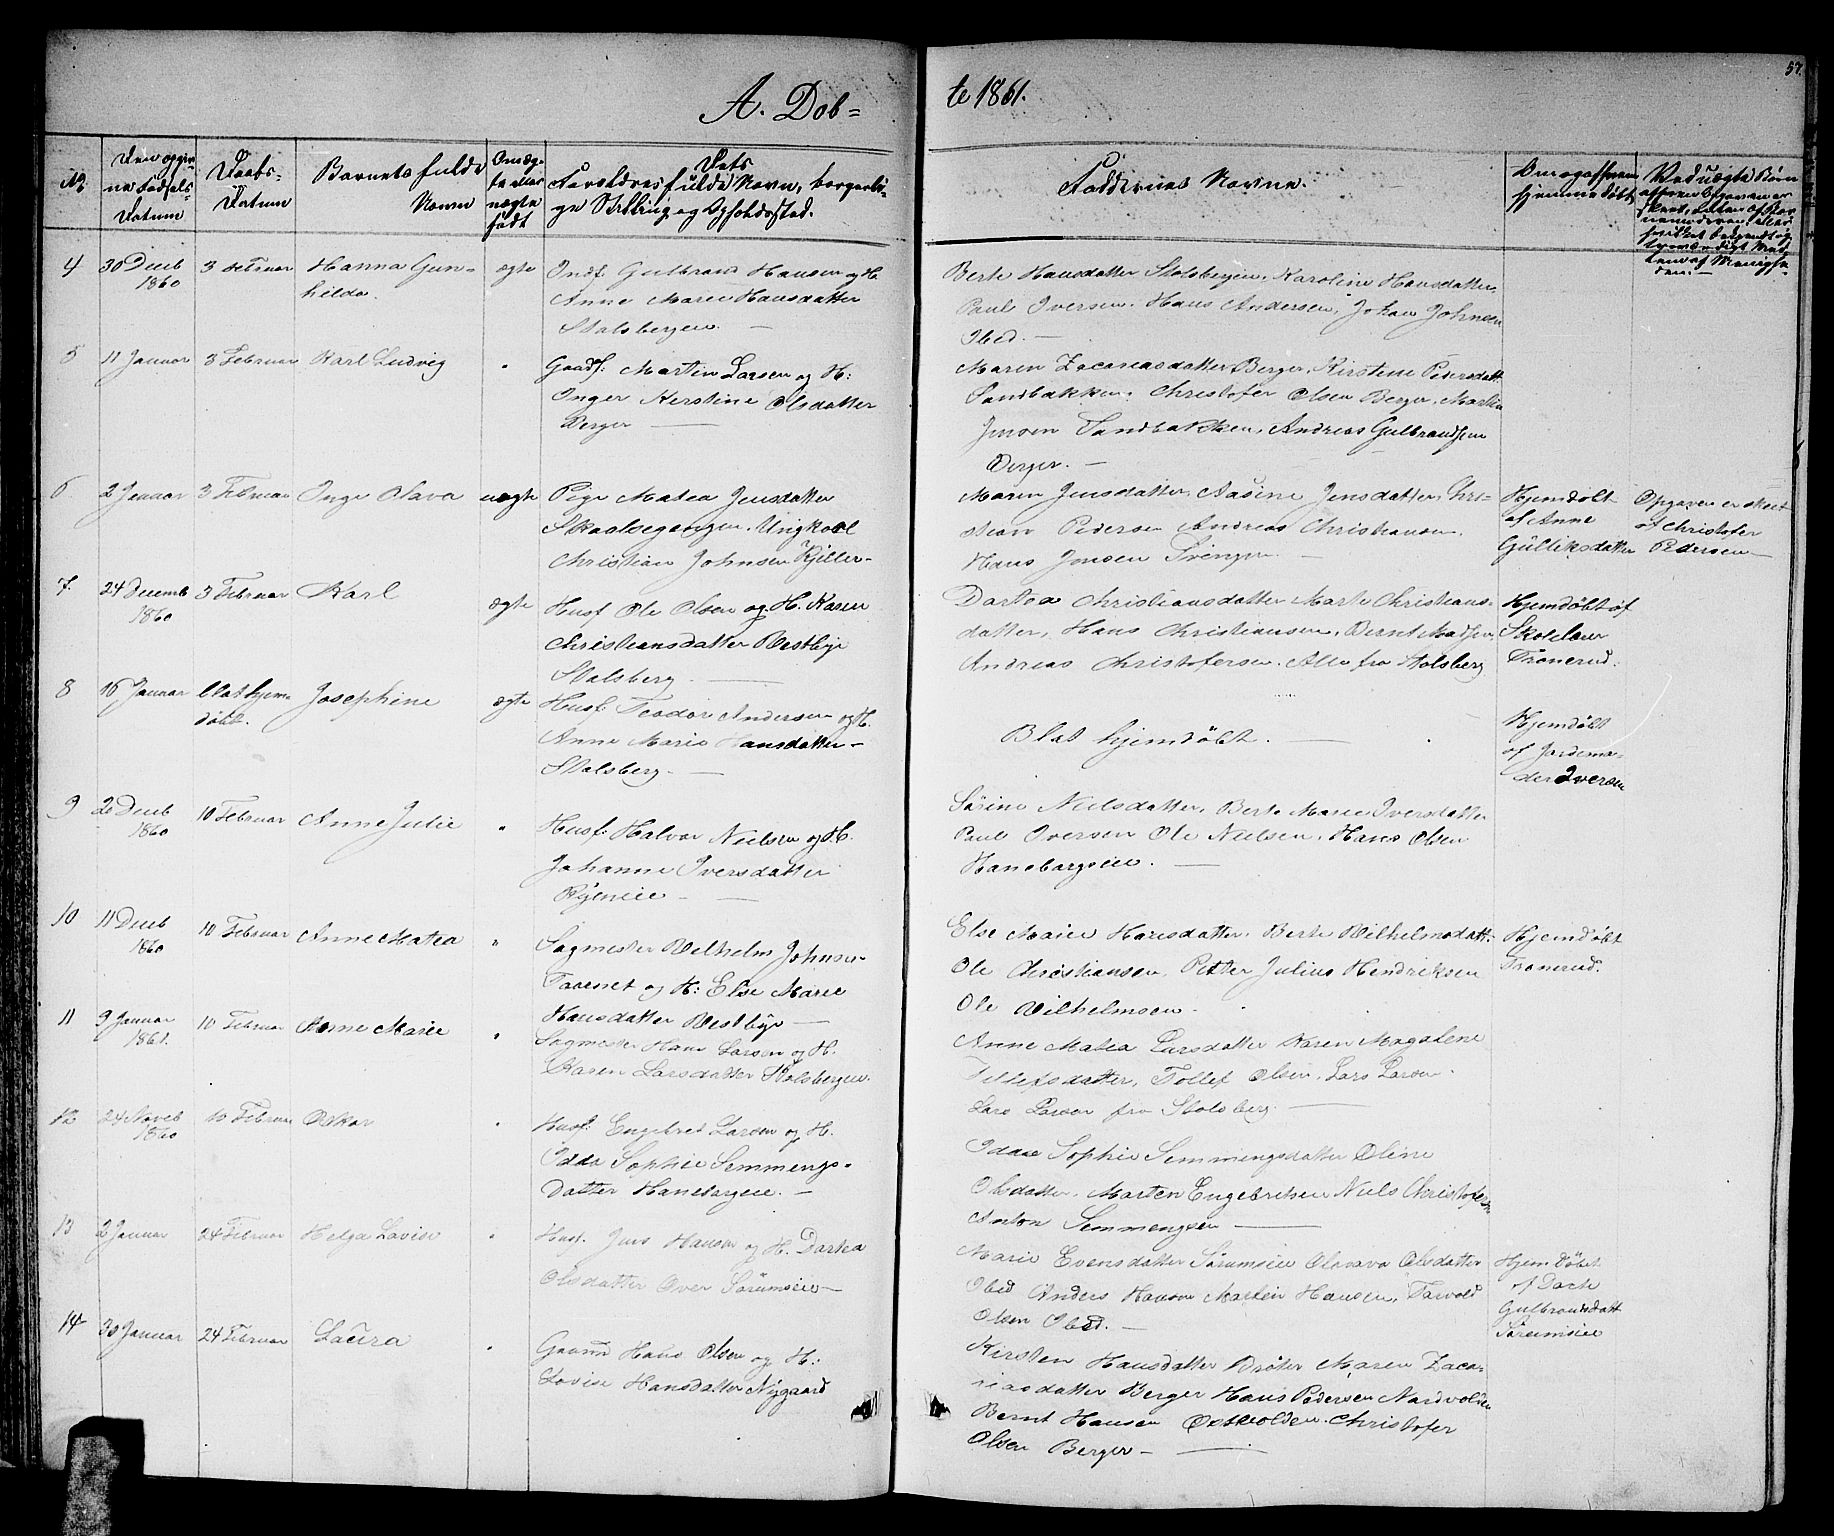 A. Døb=
te 1861.
57.
No
Den opgiv
ne Fødsels
Datum
Daabs-
Datum
Barnets fulde
Navn
Om ægte
eller
uægte
født
Dets
Forældres fulde Navn, borgerli-
ge Stilling og Opholdssted.
Faddernes Navne.
hjemmedøbt
Ved uægte Børn
4
30 Deceb
1860
3 Februar
Hanna Gun-
hilda.
ægte
Inds. Gulbrand Hansen og H.
Anne Marie Hansdatter
Stalsbergeie. —
Berte Hansdatter Stolsbergeie, Karoline Hansdatter,
Paul Iversen. Hans Andersen, Johan Johnsen
Ibid. —
5
11 Januar
3 Februar
Karl Ludvig
"
Gaadf: Martin Larsen og H:
Inger Kerstine Olsdatter
Berger —
Maren Zacariasdatter Berger, Kirstine Pedersdatt:
Sandbakken. Christofer Olsen Berger, Martin
Jensen Sandbakken, Andreas Gulbrandsen
Berger. —
6
2 Januar
3 Februar
Inge Olava
uægte
Pige Matea Jensdatter
Skaalsegangen. Ungkarl
Christian Johnsen Kjiller-
Maren Jensdatter, Aasine Jensdatter, Chri-
stian Pedersen Andreas Christiansen
Hans Jensen Svingen —
Hjemdøbt
af Anne
Gulliksdatter
Opgaven er skeet
af Christofer
Pedersen —
7.
24 Decemb
1860
3 Februar
Karl
ægte
Husf Ole Olsen og H. Karen
Christiansdatter Vestbye
Stalsberg. —
Dartea Christiansdatter Marte Christians-
datter, Hans Christiansen, Bernt Madsen
Andreas Christofersen. Alle fra Stolsberg
Hjemdøbt af
Skolelærer
Tronerud.
8
16 Januar
blot hjem-
døbt.
Josephine
ægte
Husf Teodor Andersen og H.
Anne Marie Hansdatter-
Stalsberg —
Blot hjemdøbt. —
Hjemdøbt
af Jordemo-
der Iversen
9
26 Deceb
1860
10 Februar
Anne Julie
"
Husf: Halvor Nielsen og H.
Johanne Iversdatter
Ryeneie —
Sørine Nielsdatter, Berte Marie Iversdatter
Paul Iversen Ole Nielsen, Hans Olsen
Haneborgeie. —
10
11 Deceb
1860
10 Februar
Anne Matea
"
Sagmester Vilhelm Johnsen
Faaenet og H: Else Marie
Hansdatter Vestbye —
Else Marie Hansdatter, Berte Vilhelmsdatt:
Ole Christiansen, Petter Julius Hendriksen
Ole Vilhelmsen.
Hjemdøbt
Tronerud.
11
9 Januar
1861.
10 Februar
Anne Marie
"
Sagmester Hans Larsen og H.
Karen Larsdatter Stolsbergeie.
Anne Matea Larsdatter Karen Magdalene
Tollefsdatter, Tollef Olsen, Lars Larsen
Lars Larsen fra Stolsberg. —
12
24 Noveb
1860
10 Februar
Oskar
"
Husf: Engebret Larsen og H.
Idda Sophie Semmengs-
datter Haneborgeie. —
Idase Sophie Semmengsdatter Oline
Olsdatter. Marten Engebretsen Niels Christofersen
Anton Semmengsen —
13
2 Januar
24 Februar
Helga Lovise
"
Husf. Jens Hansen og H. Dartea
Olsdatter Over Sørumseie —
Marie Evensdatter Sørumseie Olavava Olsdatter
Ibid Anders Hansen Martin Hansen, Tarvold
Olsen Ibid. —
Hjemdøbt
af Dorte
Gulbrandsdatt
Sørumseie
14
30 Januar
24 Februar
Laura
"
Gaamd Hans Olsen og H:
Lovise Hansdatter Nygaard
Kirsten Hansdatter Brøter Maren Zaca-
riasdatter Berger Hans Pedersen Nordvolden
Bernt Hansen Østvolden. Christofer
Olsen Berger —